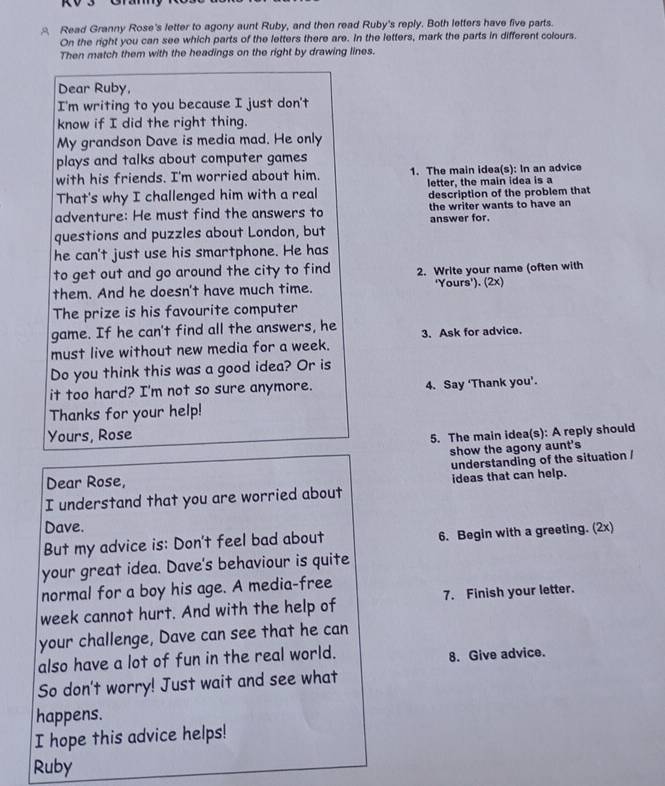 Read Granny Rose's letter to agony aunt Ruby, and then read Ruby's reply. Both letters have five parts.
On the right you can see which parts of the letters there are. In the letters, mark the parts in different colours.
Then match them with the headings on the right by drawing lines.
Dear Ruby,
I'm writing to you because I just don't
know if I did the right thing.
My grandson Dave is media mad. He only
plays and talks about computer games
with his friends. I'm worried about him.
That's why I challenged him with a real
adventure: He must find the answers to
questions and puzzles about London, but
he can't just use his smartphone. He has
to get out and go around the city to find
them. And he doesn't have much time.
The prize is his favourite computer
game. If he can't find all the answers, he
must live without new media for a week.
Do you think this was a good idea? Or is
it too hard? I'm not so sure anymore.
Thanks for your help!
Yours, Rose
Dear Rose,
I understand that you are worried about
Dave.
But my advice is: Don't feel bad about
your great idea. Dave's behaviour is quite
normal for a boy his age. A media-free
week cannot hurt. And with the help of
your challenge, Dave can see that he can
also have a lot of fun in the real world.
So don't worry! Just wait and see what
happens.
I hope this advice helps!
Ruby
1. The main idea(s): In an advice
letter, the main idea is a
description of the problem that
the writer wants to have an
answer for.
2. Write your name (often with
'Yours'). (2x)
3. Ask for advice.
4. Say 'Thank you'.
5. The main idea(s): A reply should
show the agony aunt's
understanding of the situation /
ideas that can help.
6. Begin with a greeting. (2x)
7. Finish your letter.
8. Give advice.